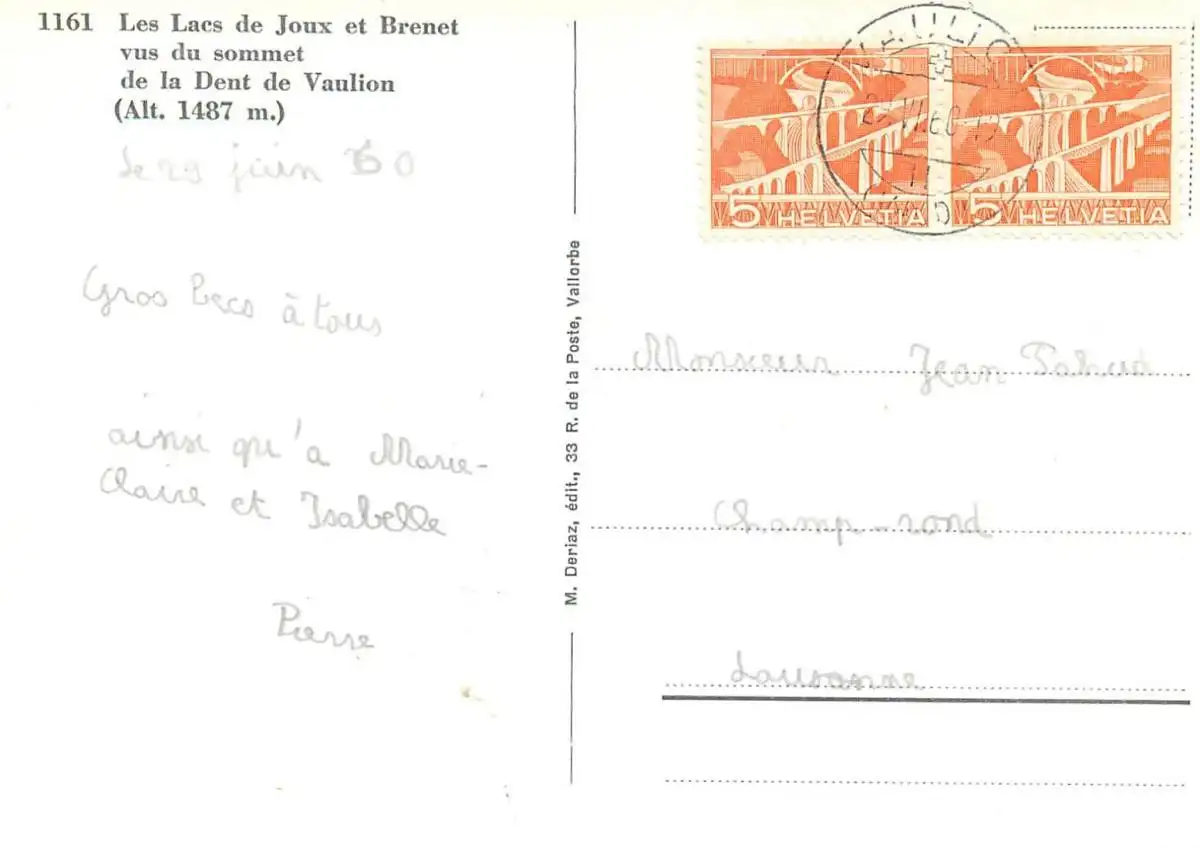 1161 Les Lacs de Joux et Brenet
vus du sommet
de la Dent de Vaulion
(Alt. 1487 m.)
le 29 juin 60
Gros becs à tous
ainsi qu'a Marie-
Claire et Isabelle
Pierre
M. Deriaz, édit., 33 R. de la Poste, Vallorbe
5 HELVETIA
5 HELVETIA
Monsieur Jean Pahud
Champ-rond
Lausanne